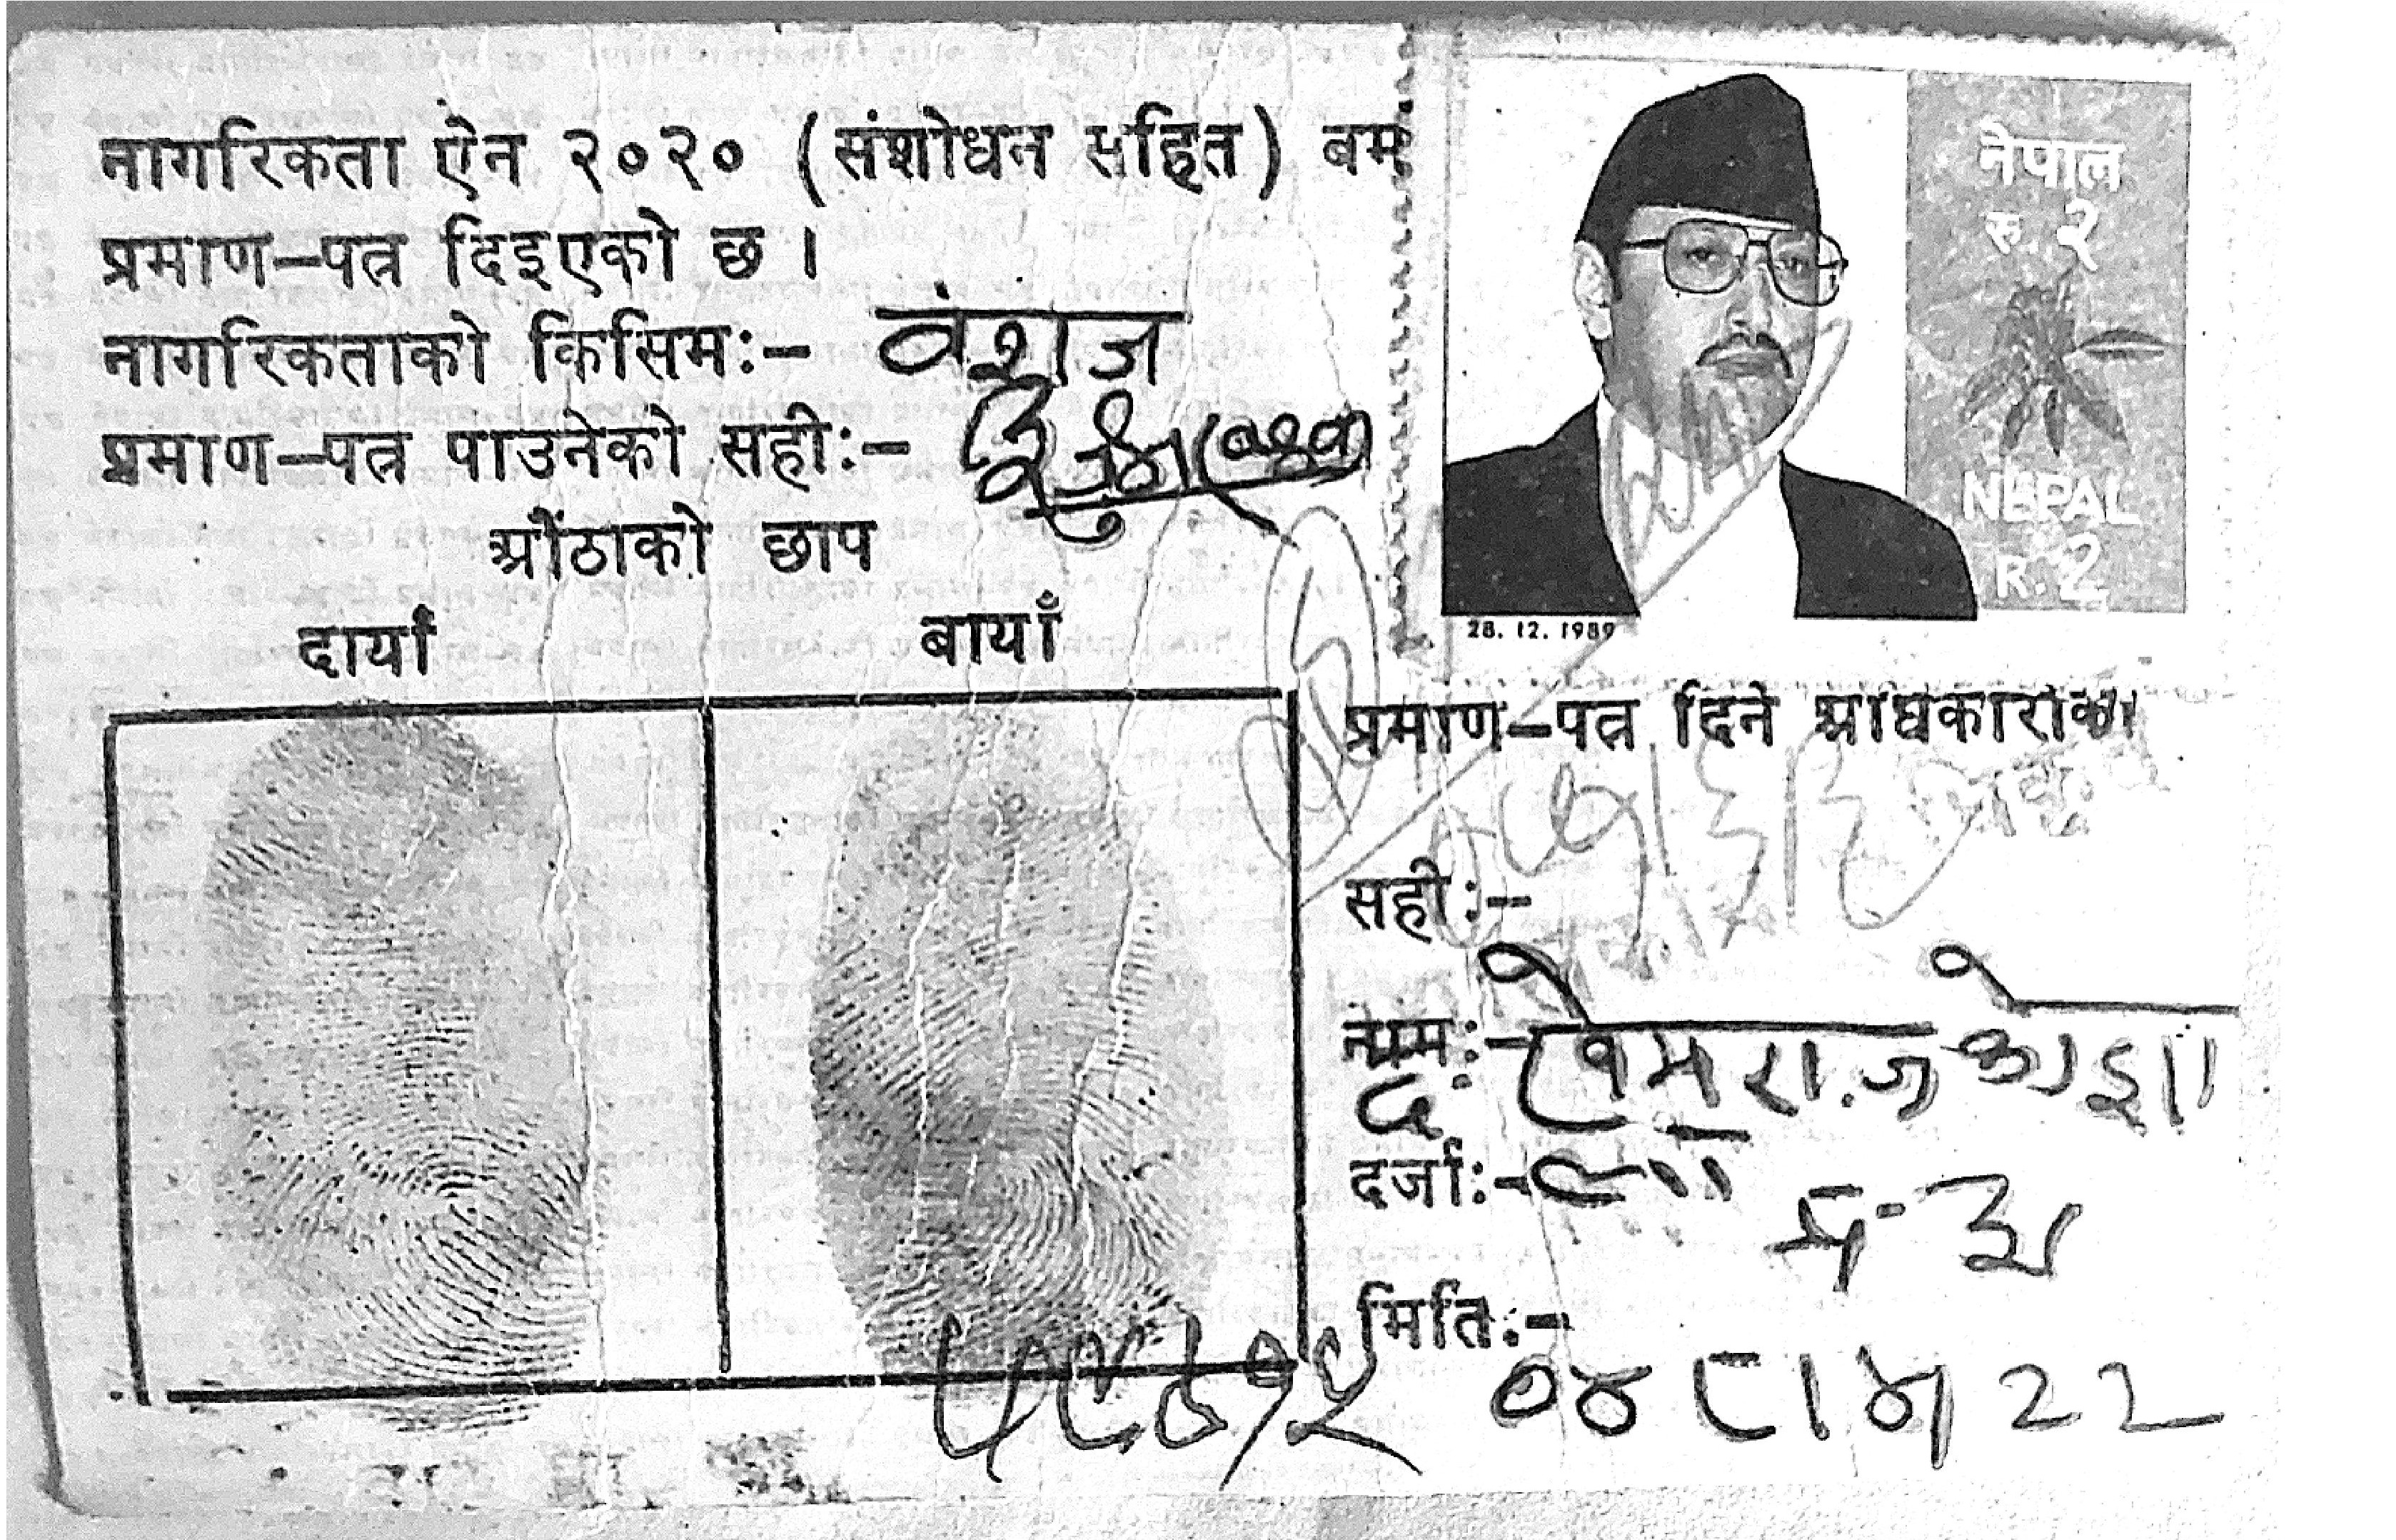 नागरिकता ऐन २०२० (संशोधन सहित) बम
प्रमाण-पत्र दिइएको छ ।
नागरिकताको किसिमः- वंशज
प्रमाण-पत्र पाउनेको सहीः-
औंठाको छाप
दायाँ बायाँ
नेपाल
रु. २
NEPAL
R. 2
28. 12. 1989
प्रमाण-पत्र दिने अधिकारीको
सहीः-
नामः- खेमराज ओझा
दर्जाः- प्र. अ
मितिः-